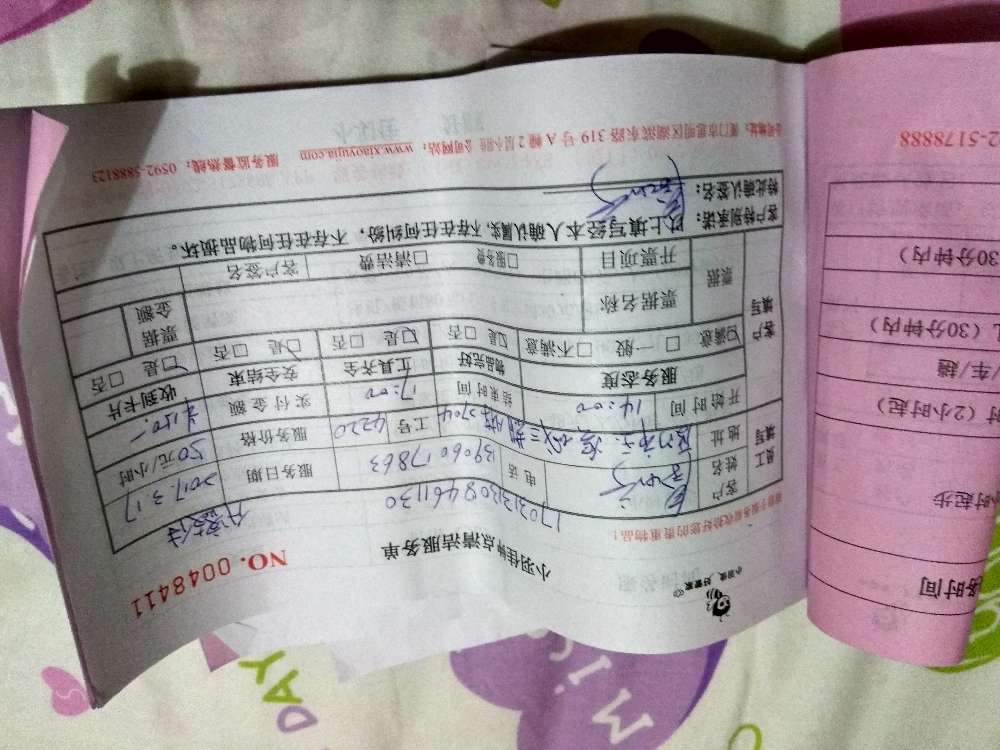 小羽佳,好管家
小羽佳钟点清洁服务单
NO. 0048411
员工填写
客户姓名
电话 13906017863
服务日期 2017.3.17
地址
工号 4220
服务价格 50元/小时
开始时间 14:00
结束时间 17:00
实付金额 ¥150.-
收到卡片
客户填写
服务态度
物品完好
工具齐全
安全结束
☑是 □否
☑满意 □一般 □不满意
☑是 □否
☑是 □否
☑是 □否
票据
票据名称
票据金额
开票项目
□服务费
□清洁费
客户签名
客户特别承诺:以上填写经本人确认属实,不存在任何纠纷,不存在任何物品损坏。
特此确认签名:
公司地址:厦门市思明区湖滨东路 319 号 A 幢 2 层小羽佳 公司网站:www.xiaoyujia.com 服务监督热线:0592-5888123
2-5178888
30分钟内)
(30分钟内)
/车/趟
(2小时起)
小时起步
务时间